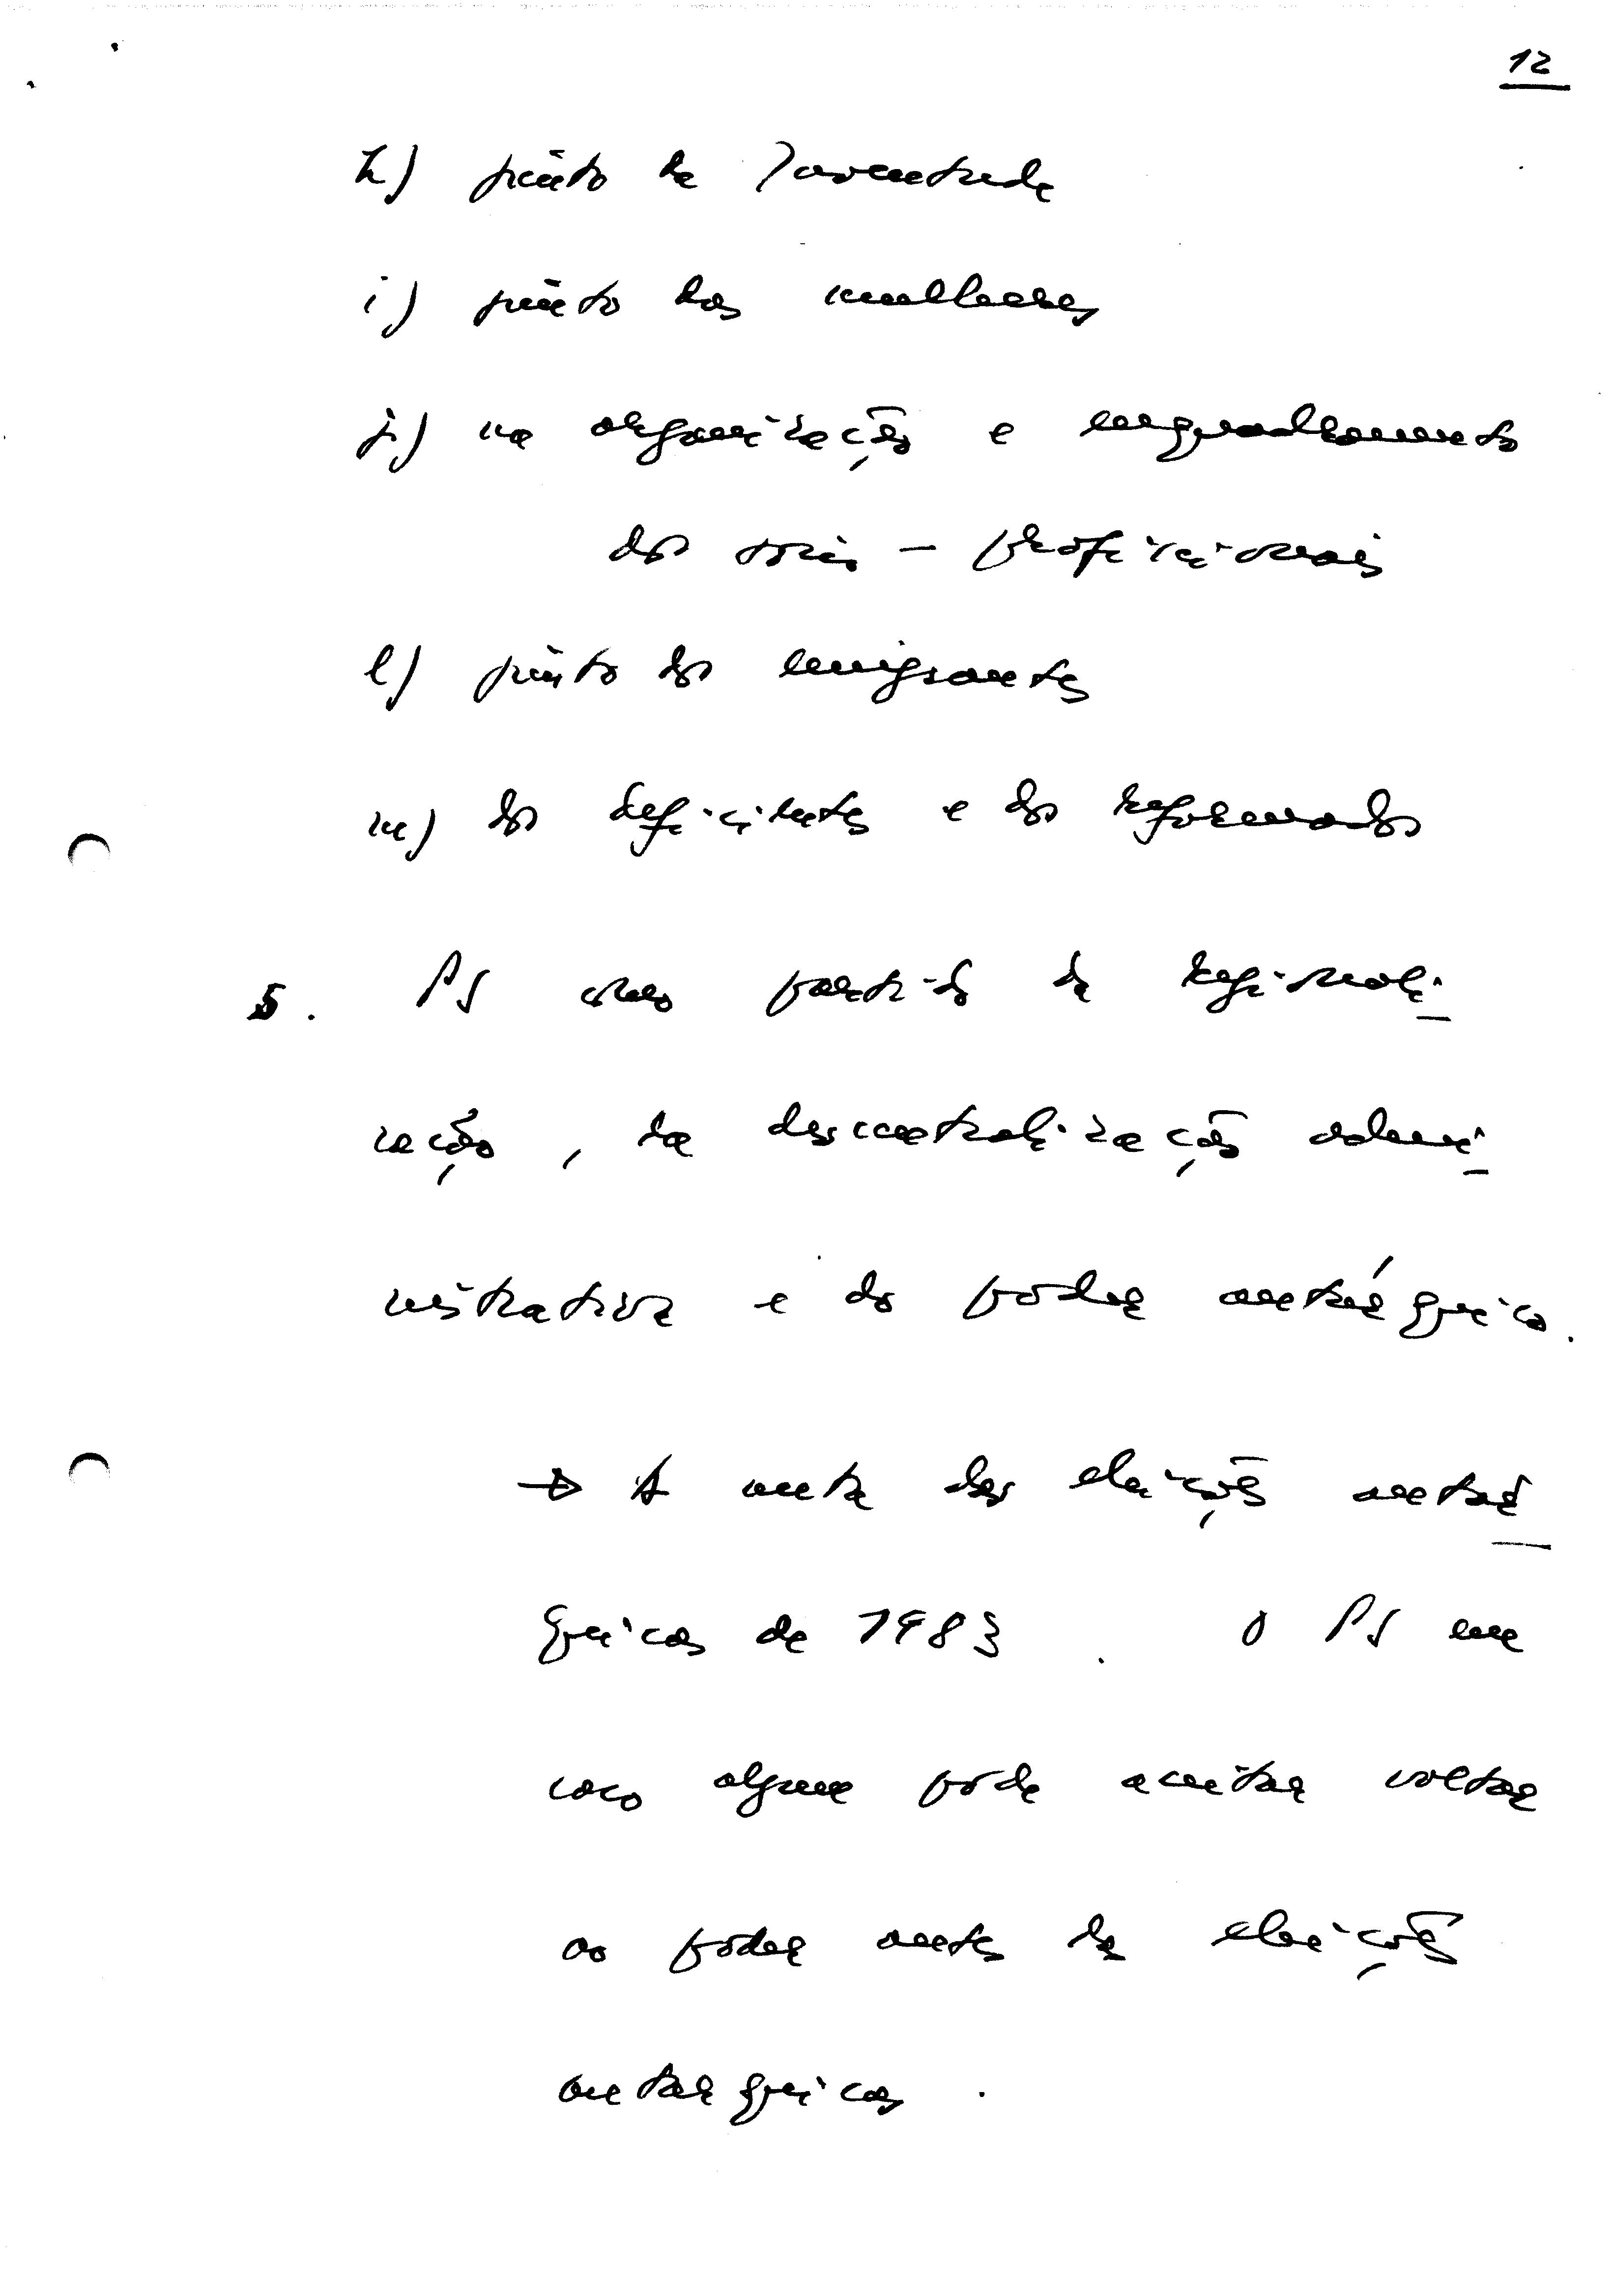 12
h) junto da Juventude
i) junto das mulheres
j) na organização e enquadramento
dos sócio-profissionais
l) junto dos emigrantes
m) dos deficientes e dos reformados
5. PS como partido da regionali-
zação, da descentralização admi-
nistrativa e do poder autárquico.
→ A meta das eleições autár-
quicas de 1983. O PS em
caso algum pode aceitar voltar
ao poder antes de eleições
autárquicas.